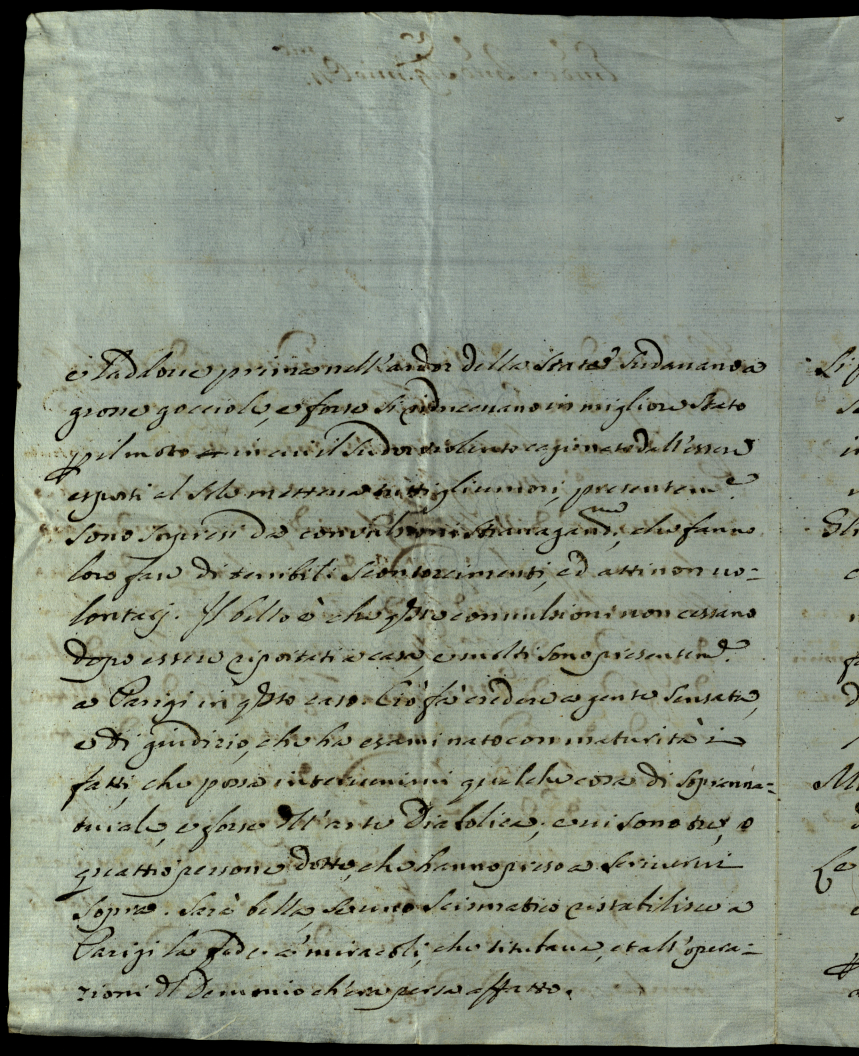 e laddove prima nell'ardor della State sudavano a
grosse gocciole, e forse si riducevano in miglior stato
p il moto in cui il sudor violento cagionato dall'essere
esposti al Sole metteva tutti gli umori, presentem.e
sono sopresi da convulsioni stravagand.me, che fanno
loro fare di terribili scontorcimenti, ed atti non vo=
lontarj. Il bello è che q.ste convulsioni non cessano
dopo essere riportati a casa e molti sono presentem.e
a Parigi in q.sto caso. Ciò fà credere a gente sensata,
e di giudizio, che ha essaminato con maturità i
fatti, che possa intervenirvi qualche cosa di sopranna=
turale, e forse dell'arte Diabolica, e vi sono tre, o
quattro persone dotte, che hanno preso a scrivervi
sopra. Sarà bella, se uno Scismatico ristabilisce a
Parigi la fede a' miracoli, che titubava, et all'opera=
zioni del Demonio ch'era persa affatto.